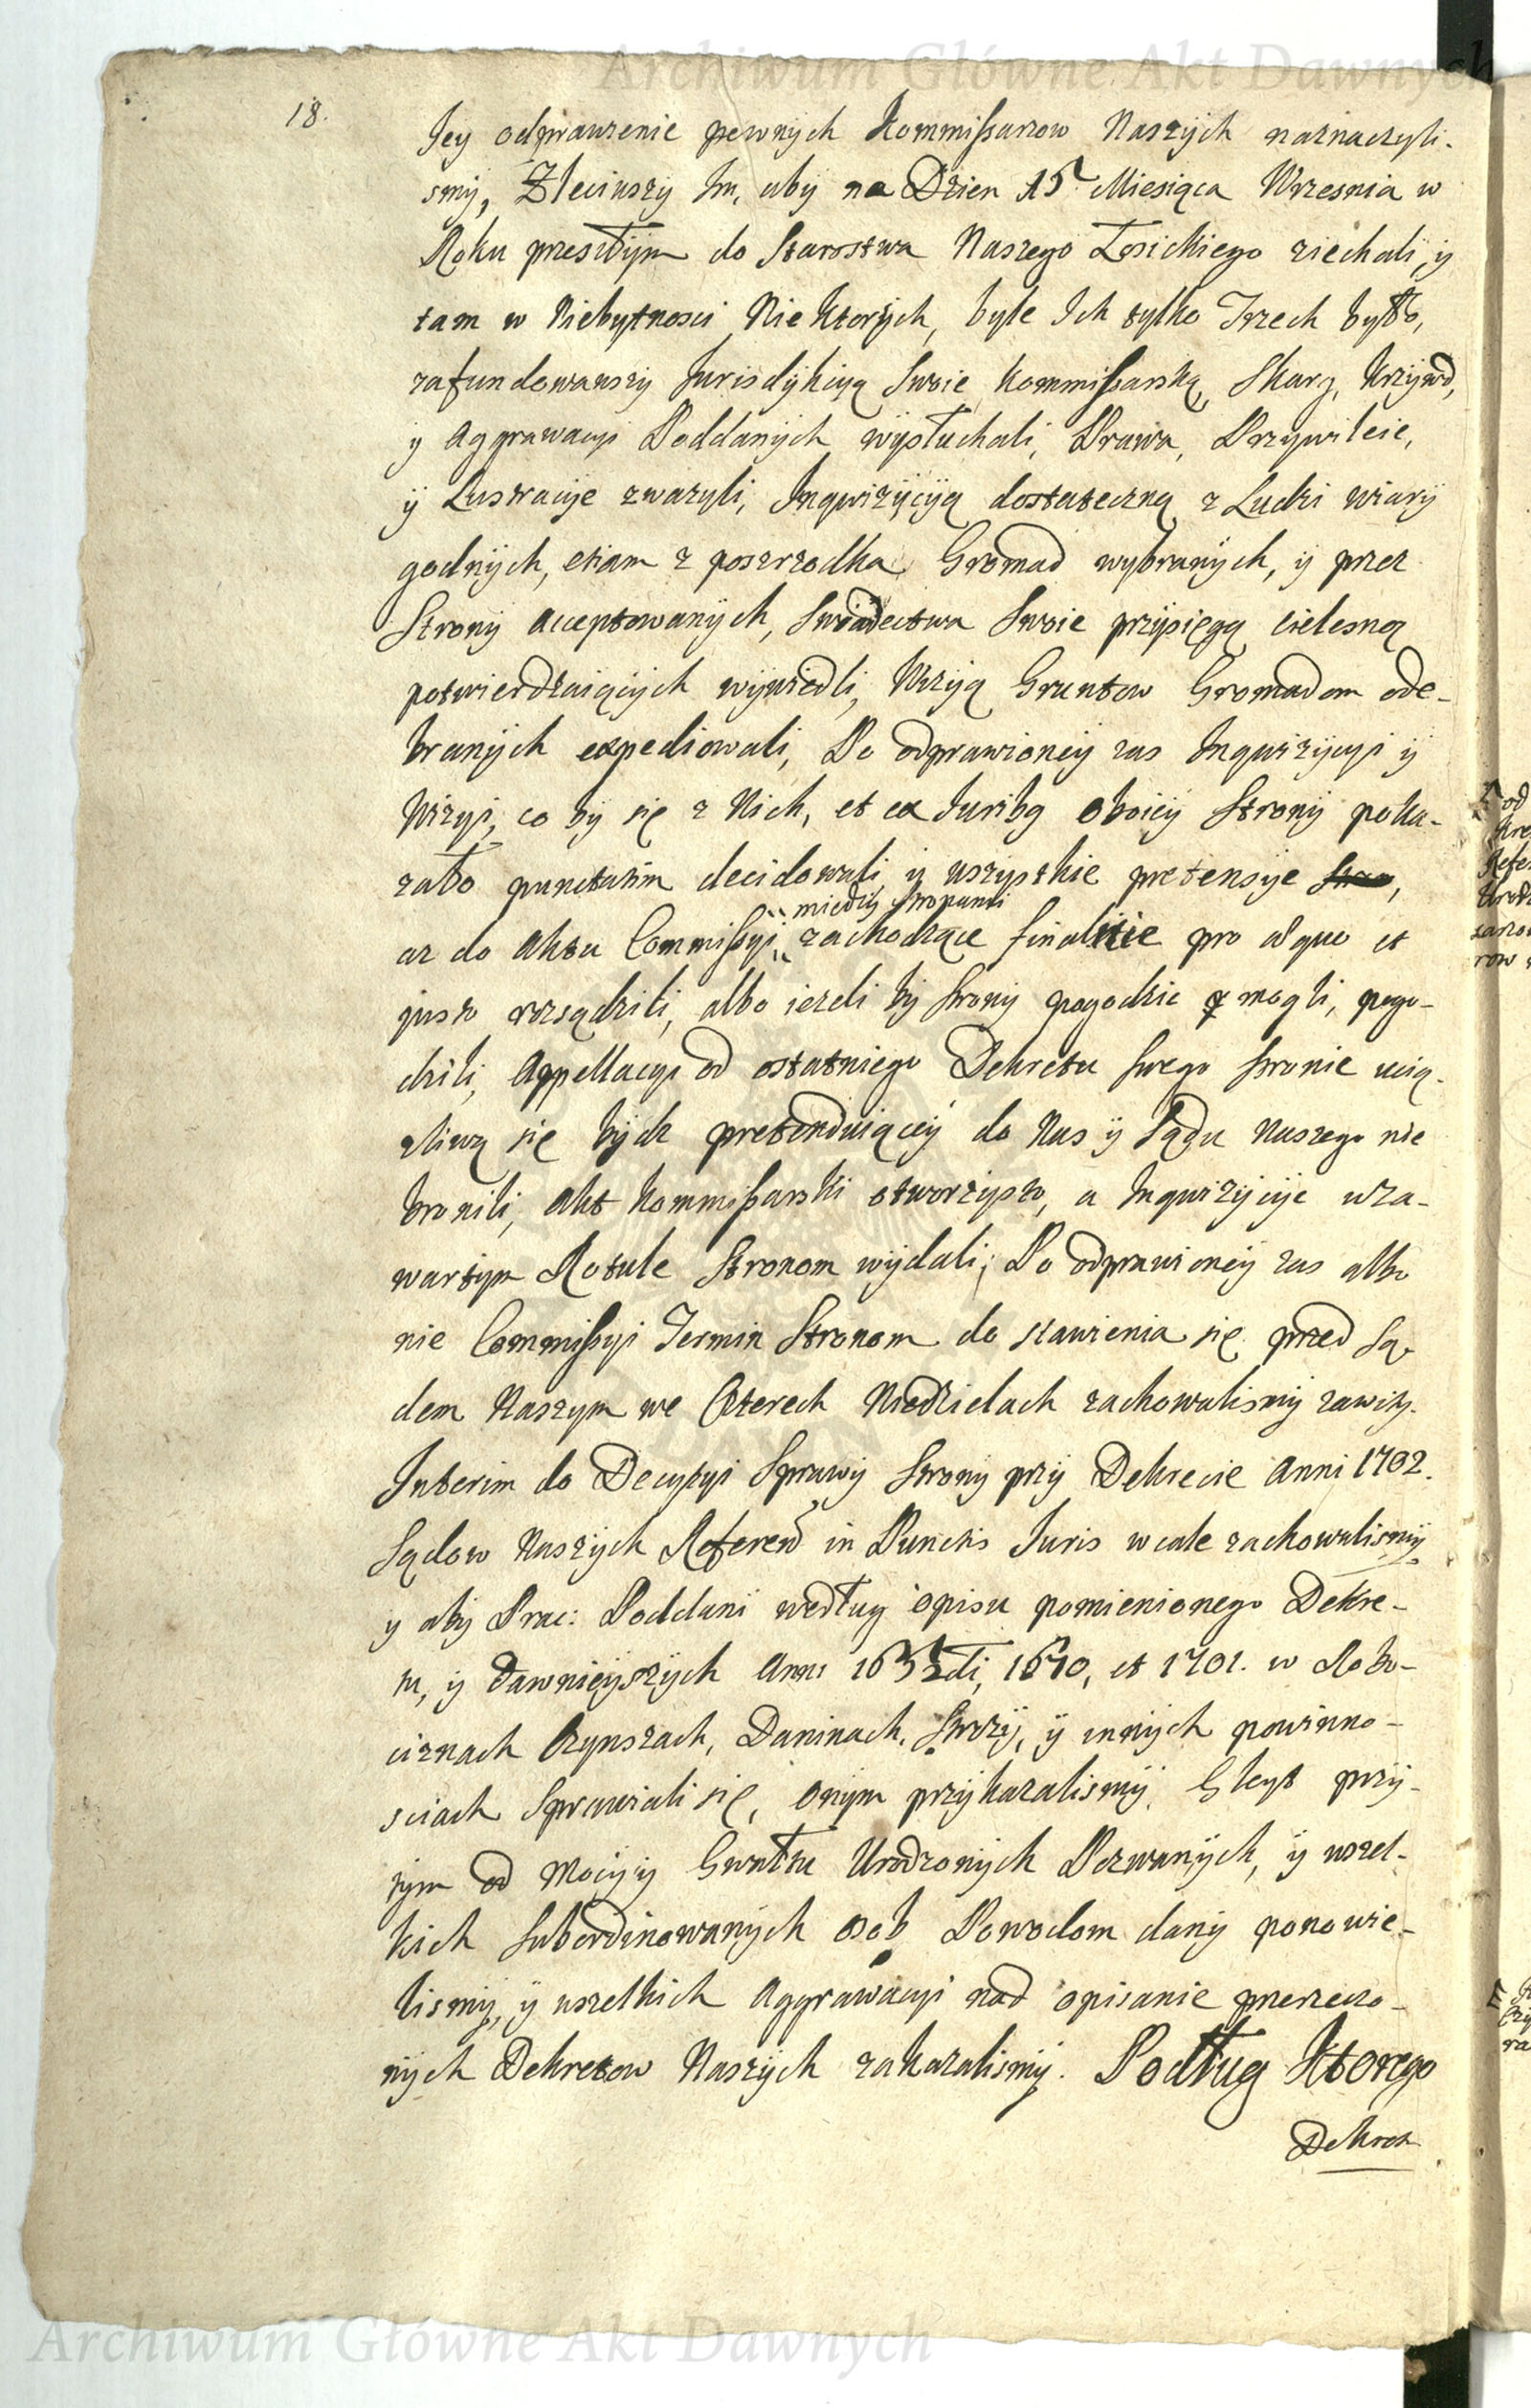 Archiwum Główne Akt Dawnych
18.
Jey odprawienie pewnych Kommißarzow Naszych naznaczyli-
smy, Zleciwszy Im, aby na Dzien 15 Miesiąca Wrzesnia w
Roku przeszłym do Starostwa Naszego Łosickiego ziechali, y
tam w Niebytnosci Niektorych, byle Ich tylko Trzech było,
zafundowawszy Jurisdykcyą Swoie Kommißarską, Skarg, Krzywd,
y Aggrawacyi Poddanych wysłuchali, Prawa, Przywileie,
y Lustracyie zwazyli, Inqwizycyą dostateczną z Ludzi wiary
godnych, etiam z poszrzodka Gromad wybranych, y przez
Strony Acceptowanych, Swiadectwa Swoie przysięgą cielesną
potwierdzaiących wywiedli, Wizyą Gruntow Gromadom ode-
branych expediowali, Po odprawioney zas Inqwizycyi y
Wizyi, co by się z Nich, et ex Juribg oboiey Strony poka-
zało punctatim decidowali, y wszystkie pretensyie
miedzy Stronami
az do Aktu Commißyi zachodzące finalnie pro aequo et
justo rozsądzili, albo iezeli by Strony pogodzic mogli, pogo-
dzili, Appellacyi od ostatniego Dekretu swego stronie ucią-
zliwą się bydz pretenduiącey do Nas y Sądu Naszego nie
bronili, Akt Kommißarski otworzysto, a Inqwizycyie w za-
wartym Rotule Stronom wydali; Po odprawioney zas albo
nie Commißyi Termin Stronom do stawienia się przed Są-
dem Naszym we Czterech Niedzielach zachowalismy zawity.
Interim do Decyzyi Sprawy Strony przy Dekrecie Anni 1702.
Sądow Naszych Referend in Punctis Juris wcale zachowalismy
y aby Prac: Poddani według opisu pomienionego Dekre-
tu, y dawnieyszych Anni 1670, et 1701. w Robo-
ciznach Czynszach, Daninach, Strozy, y innych powinno-
sciach Sprawiali się, onym przykazalismy. Gleyt przy-
tym od Mocy y Gwałtu Urodzonych Pozwanych, y wszel-
kich Subordinowanych osob Powodom dany ponowie-
lismy, y wszelkich Aggrawacyi nad opisanie przerzeczo-
nych Dekretow Naszych zakazalismy. Podług Ktorego
Dekret
Archiwum Główne Akt Dawnych